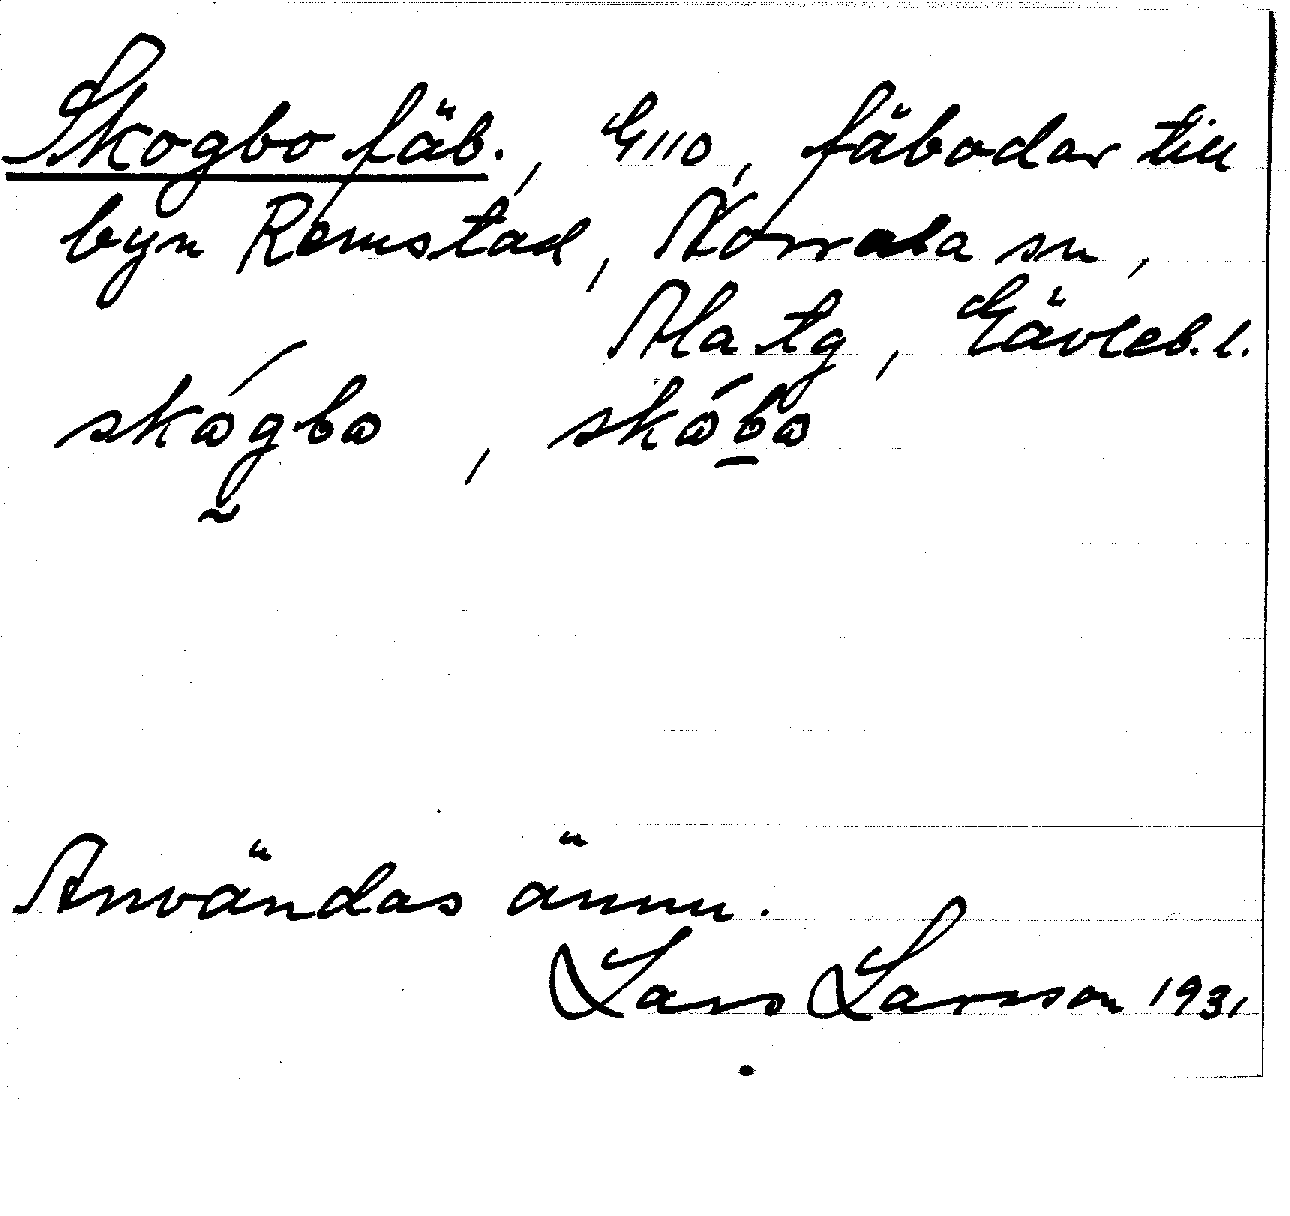 Skogbo fäb., G110, fäbodar till
byn Remstad, Norrala sn,
Ala tg, Gävleb. l.
skógbo, skóbo
Användas ännu.
Lars Larsson 1931